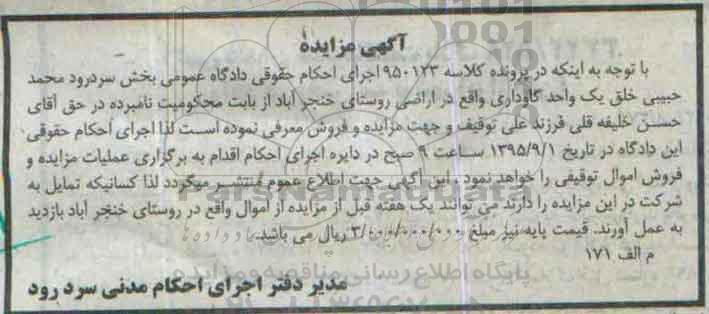 آگهی مزایده
با توجه به اینکه در پرونده کلاسه ۹۵۰۱۲۳ اجرای احکام حقوقی دادگاه عمومی بخش سردرود محمد
حبیبی خلق یک واحد گاوداری واقع در اراضی روستای خنجر آباد از بابت محکومیت نامبرده در حق آقای
حسن خلیفه قلی فرزند علی توقیف و جهت مزایده و فروش معرفی نموده است لذا اجرای احکام حقوقی
این دادگاه در تاریخ ۱۳۹۵/۹/۱ ساعت ۹ صبح در دایره اجرای احکام اقدام به برگزاری عملیات مزایده و
فروش اموال توقیفی را خواهد نمود . این آگهی جهت اطلاع عموم منتشر میگردد لذا کسانیکه تمایل به
شرکت در این مزایده را دارند می توانند یک هفته قبل از مزایده از اموال واقع در روستای خنجر آباد بازدید
به عمل آورند. قیمت پایه نیز مبلغ ۳/۰۰۰/۰۰۰/۰۰۰ ریال می باشد.
م الف ۱۷۱
مدیر دفتر اجرای احکام مدنی سرد رود
پایگاه اطلاع رسانی مناقصه و مزایده